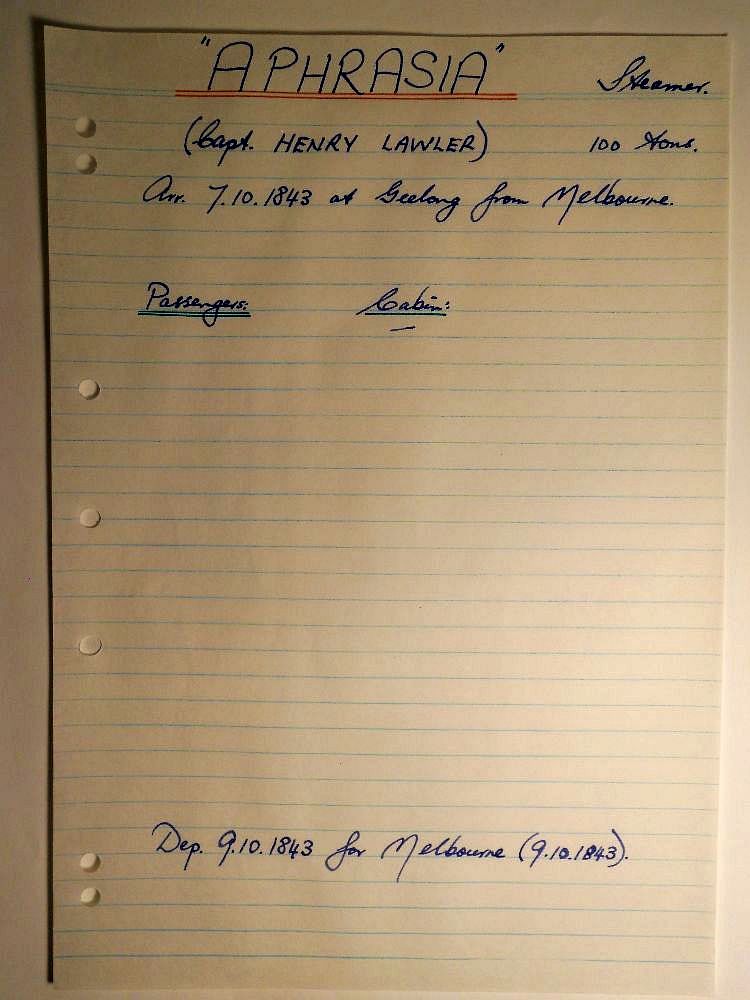 "APHRASIA" Steamer.
(Capt. HENRY LAWLER) 100 tons.
Arr. 7.10.1843 at Geelong from Melbourne.
Passengers: Cabin:
—
Dep. 9.10.1843 for Melbourne (9.10.1843).